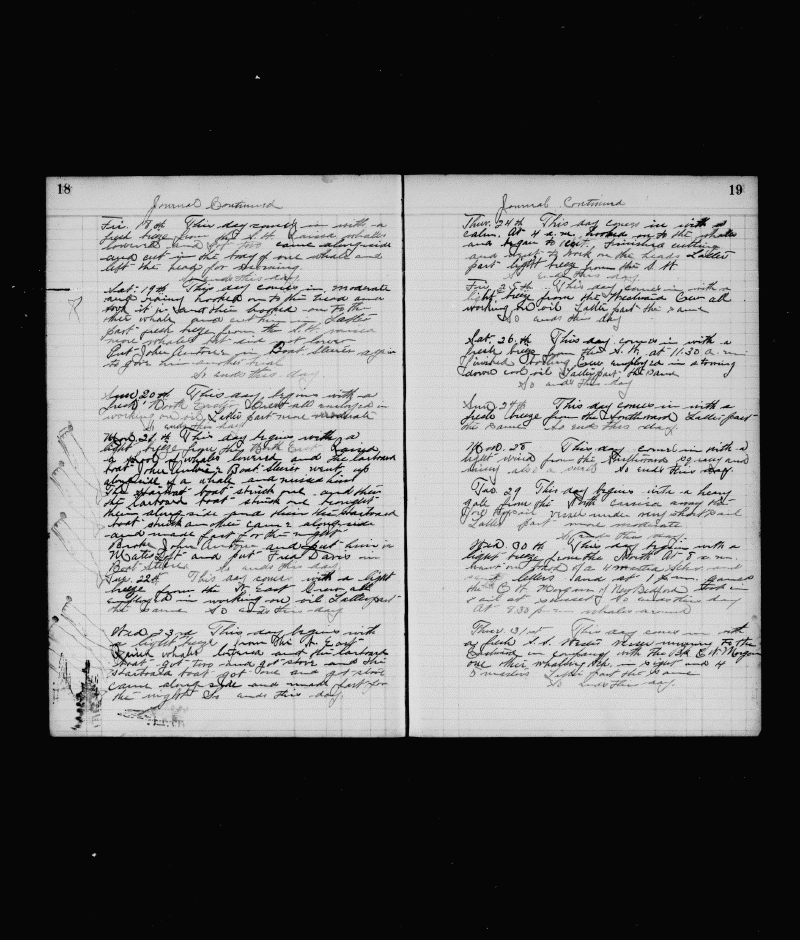 18
Journal Continued
Fri. 18th This day comes in with a
fresh breeze from the S.W. Raised whales
lowered and got two came alongside
and cut in the body of one whale and
left the head for morning.
So ends this day.
Sat. 19th This day comes in moderate
and rainy hooked on to the head and
took it in and then hooked on to the
other whale and cut him in Latter
part fresh breeze from the S.W. raised
more whales but did not lower
Put John Antone in Boat Steerer again
to give him another trial
So ends this day
Sun 20th This day begins with a
fresh North East all employed in
working on oil Latter part more moderate
So ends this day
Mon 21st This day begins with a
light breeze from the North East Raised
a pod of whales lowered and the larboard
boat John Antone Boat Steerer went up
alongside of a whale and missed him
The starboard boat struck one and then
the larboard boat struck one brought
them alongside and then the larboard
boat struck another came alongside
and made fast for the night
Broke John Antone and put him in
Mates boat and put Fred Davis in
Boat Steerer. So ends this day
Tue. 22th This day comes with a light
breeze from the N East Crew all
employed in working on oil Latter part
the same So ends this day
Wed 23rd This day begins with
a light breeze from the N. East
whales lowered and the larboard
boat got two and got stove and the
starboard boat got one and got stove
came along side and made fast for
the night So ends this day
19
Journal Continued
Thur. 24th This day comes in with a
calm. At 4 a.m. hooked on to the whales
and began to cut. Finished cutting
and went to work on the heads Latter
part light breeze from the S W
So ends this day
Fri 25th This day comes in with a
light breeze from the Westward Crew all
working on oil Latter part the same
So ends this day
Sat. 26th This day comes in with a
fresh breeze from the S.W. at 11.30 a.m
finished boiling Crew employed in stowing
down oil Latter part the same
So ends this day
Sun 27th This day comes in with a
fresh breeze from the Southward Latter part
the same So ends this day.
Mon. 28 This day comes in with a
light wind from the Southward squally and
So ends this day
Tue. 29 This day begins with a heavy
gale from the North carried away the
Fore Topsail vessel under very short sail
Latter part more moderate
So ends this day.
Wed. 30th This day begins with a
light breeze from the North At 8 a.m.
went on board of a 4 masted Schr. and
sent letters land at 1 p.m. gammed
the C W Morgan of New Bedford took in
sail at sunset So ends this day
At 8.30 p.m whales around
Thur 31st This day comes in with
a fresh S.S. Wester vessel running to the
Eastward in company with the Bk C W Morgan
one other whaling Sch. in sight and 4
3 masters Latter part the same
So ends this day